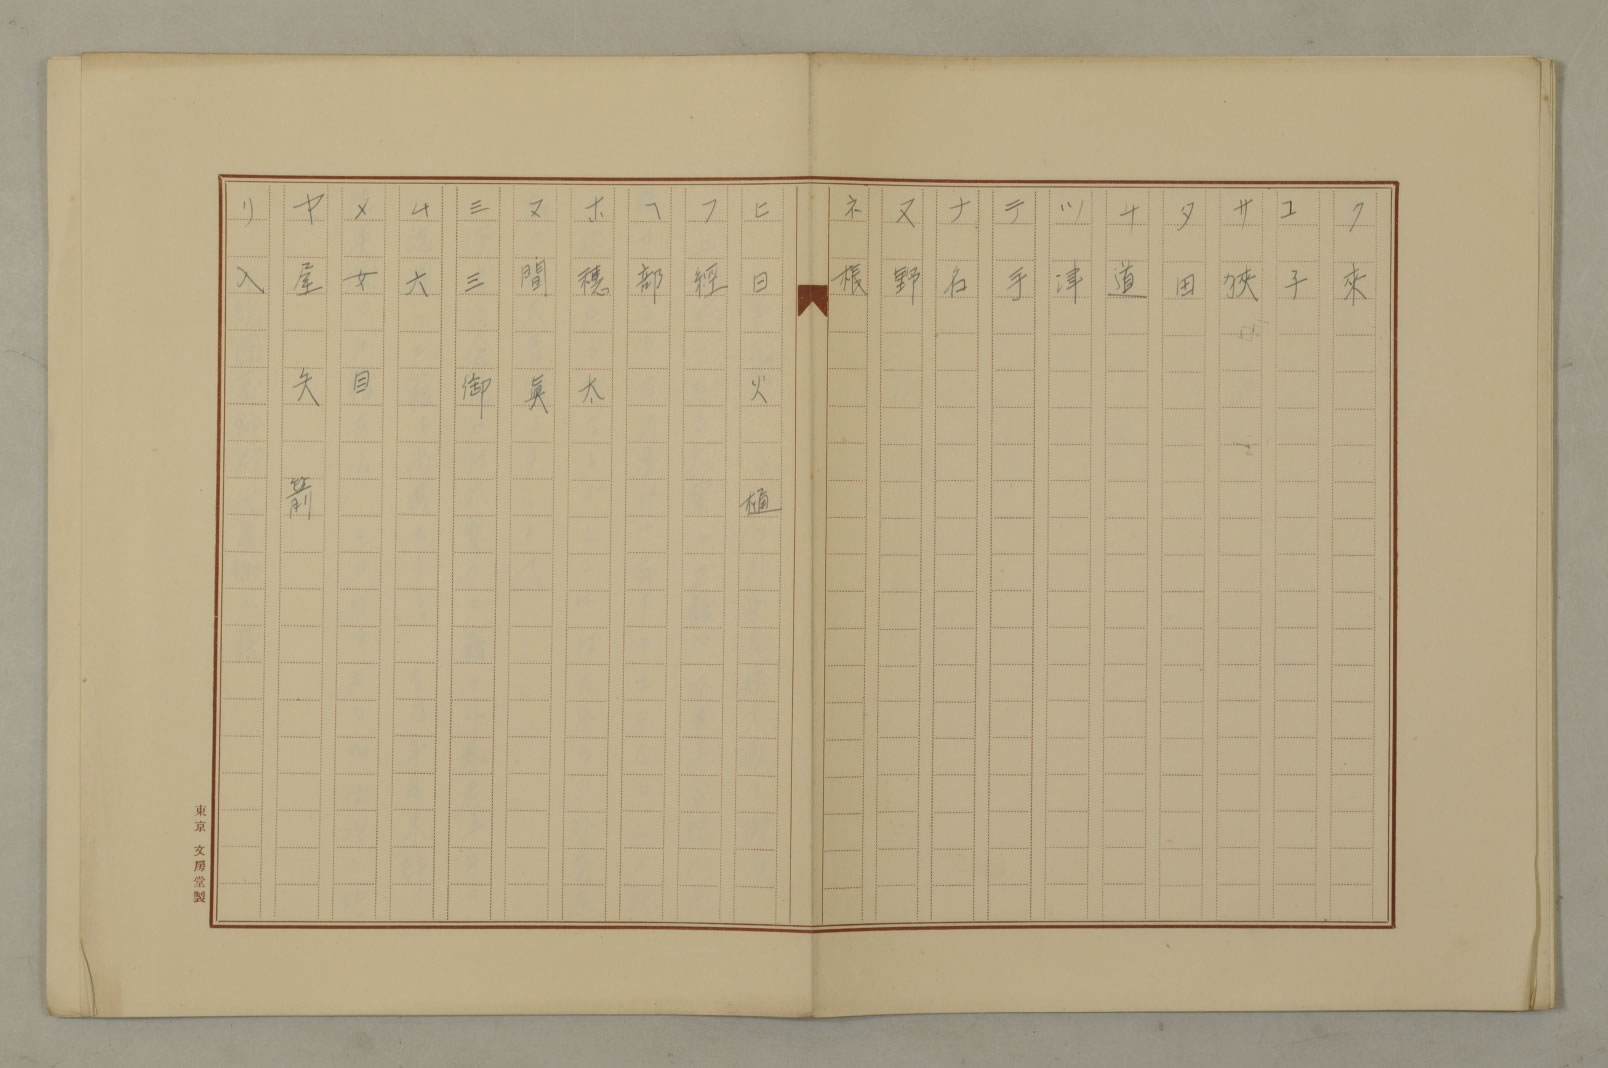 ク 來
コ 子
サ 狹
タ 田
チ 道
ツ 津
テ 手
ナ 名
ヌ 野
ネ 根
ヒ 日 火 樋
フ 經
ヘ 部
ホ 穗 太
マ 間 眞
ミ 三 御
ム 六
メ 女 目
ヤ 屋 矢 箭
リ 入
東京 文房堂製